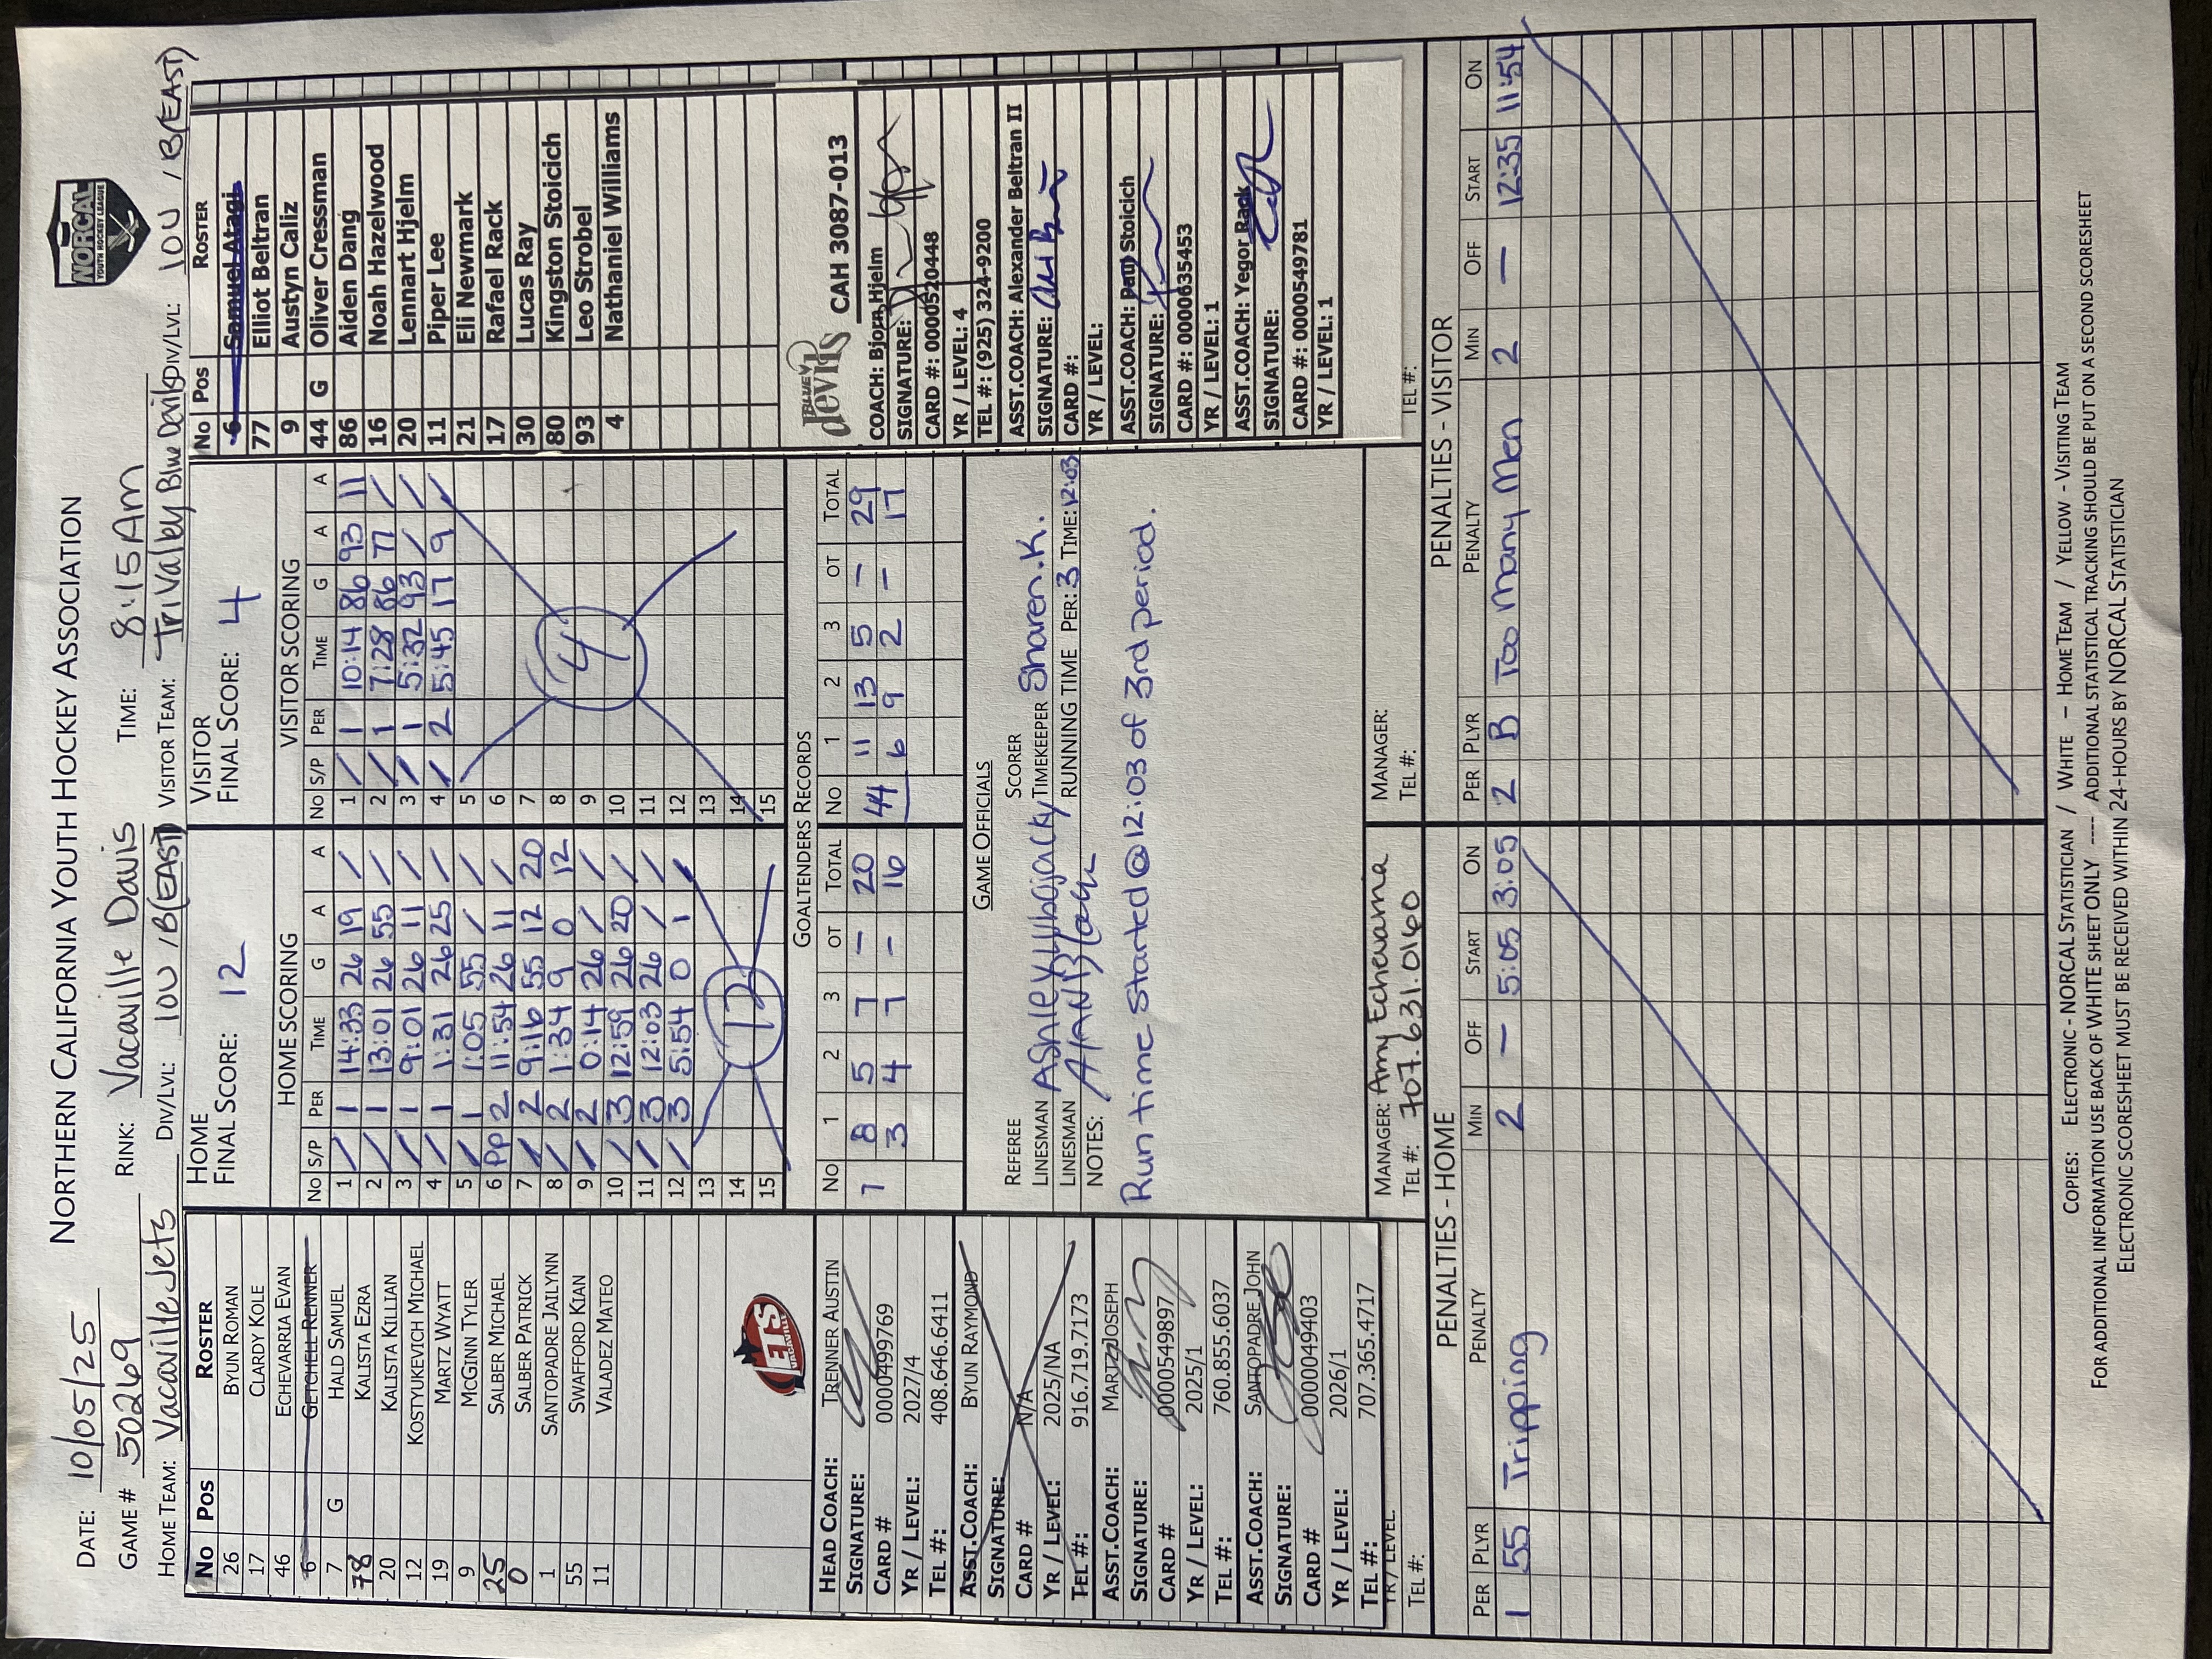 NORTHERN CALIFORNIA YOUTH HOCKEY ASSOCIATION
NORCAL
YOUTH HOCKEY LEAGUE
DATE: 10/05/25
GAME # 50269 RINK: Vacaville Davis TIME: 8:15 Am
HOME TEAM: Vacaville Jets DIV/LVL: 10U / B(EAST) VISITOR TEAM: Tri Valley Blue Devils DIV/LVL: 10U / B(EAST)
No Pos ROSTER
26 BYUN ROMAN
17 CLARDY KOLE
46 ECHEVARRIA EVAN
6 GETCHELL RENNER
7 G HALD SAMUEL
78 KALISTA EZRA
20 KALISTA KILLIAN
12 KOSTYUKEVICH MICHAEL
19 MARTZ WYATT
9 MCGINN TYLER
25 SALBER MICHAEL
0 SALBER PATRICK
1 SANTOPADRE JAILYNN
55 SWAFFORD KIAN
11 VALADEZ MATEO
JETS
VACAVILLE
HEAD COACH: TRENNER AUSTIN
SIGNATURE:
CARD # 0000499769
YR / LEVEL: 2027/4
TEL #: 408.646.6411
ASST.COACH: BYUN RAYMOND
SIGNATURE:
CARD # N/A
YR / LEVEL: 2025/NA
TEL #: 916.719.7173
ASST.COACH: MARTZ JOSEPH
SIGNATURE:
CARD # 0000549897
YR / LEVEL: 2025/1
TEL #: 760.855.6037
ASST.COACH: SANTOPADRE JOHN
SIGNATURE:
CARD # 0000049403
YR / LEVEL: 2026/1
TEL #: 707.365.4717
YR / LEVEL:
TEL #:
HOME
FINAL SCORE: 12
HOME SCORING
No S/P PER TIME G A A
1 / 1 14:33 26 19 /
2 / 1 13:01 26 55 /
3 / 1 9:01 26 11 /
4 / 1 1:31 26 25 /
5 / 1 1:05 55 / /
6 PP 2 11:54 26 11 /
7 / 2 9:16 55 12 20
8 / 2 1:34 9 0 12
9 / 2 0:14 26 / /
10 / 3 12:59 26 20 /
11 / 3 12:03 26 / /
12 / 3 5:54 0 1 /
13
14 12
15
VISITOR
FINAL SCORE: 4
VISITOR SCORING
No S/P PER TIME G A A
1 / 1 10:14 86 93 11
2 / 1 7:28 86 77 /
3 / 1 5:32 93 / /
4 / 2 5:45 17 9 /
5
6
7
8 4
9
10
11
12
13
14
15
GOALTENDERS RECORDS
No 1 2 3 OT TOTAL No 1 2 3 OT TOTAL
7 8 5 7 – 20 44 11 13 5 – 29
3 4 7 – 16 6 9 2 – 17
GAME OFFICIALS
REFEREE SCORER
LINESMAN TIMEKEEPER Sharen.K.
LINESMAN RUNNING TIME PER: 3 TIME: 12:03
NOTES:
Run time started @ 12:03 of 3rd period.
MANAGER: Amy Echevarria MANAGER:
TEL #: 707.631.0160 TEL #:
No Pos ROSTER
6 Samuel Atagi
77 Elliot Beltran
9 Austyn Caliz
44 G Oliver Cressman
86 Aiden Dang
16 Noah Hazelwood
20 Lennart Hjelm
11 Piper Lee
21 Eli Newmark
17 Rafael Rack
30 Lucas Ray
80 Kingston Stoicich
93 Leo Strobel
4 Nathaniel Williams
BLUE devils CAH 3087-013
COACH: Bjorn Hjelm
SIGNATURE:
CARD #: 0000520448
YR / LEVEL: 4
TEL #: (925) 324-9200
ASST.COACH: Alexander Beltran II
SIGNATURE:
CARD #:
YR / LEVEL:
ASST.COACH: Paul Stoicich
SIGNATURE:
CARD #: 0000635453
YR / LEVEL: 1
ASST.COACH: Yegor Rack
SIGNATURE:
CARD #: 0000549781
YR / LEVEL: 1
TEL #:
PENALTIES - HOME
PER PLYR PENALTY MIN OFF START ON
1 55 Tripping 2 – 5:05 3:05
PENALTIES - VISITOR
PER PLYR PENALTY MIN OFF START ON
2 B Too Many Men 2 – 12:35 11:54
COPIES: ELECTRONIC - NORCAL STATISTICIAN / WHITE – HOME TEAM / YELLOW - VISITING TEAM
FOR ADDITIONAL INFORMATION USE BACK OF WHITE SHEET ONLY ---- ADDITIONAL STATISTICAL TRACKING SHOULD BE PUT ON A SECOND SCORESHEET
ELECTRONIC SCORESHEET MUST BE RECEIVED WITHIN 24-HOURS BY NORCAL STATISTICIAN